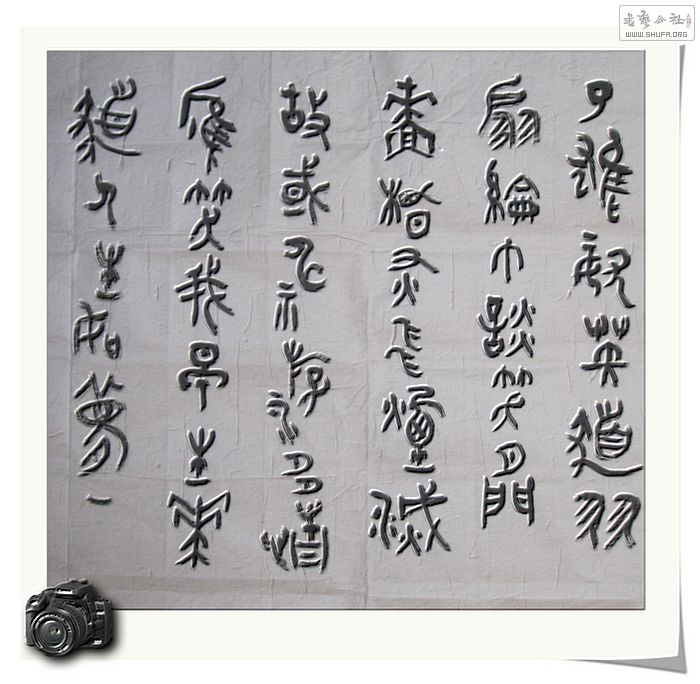 書藝公社
WWW.SHUFA.ORG
了雄姿英發羽
扇綸巾談笑間
檣櫓灰飛煙滅
故國神游多情
應笑我早生華
髮人生如夢一